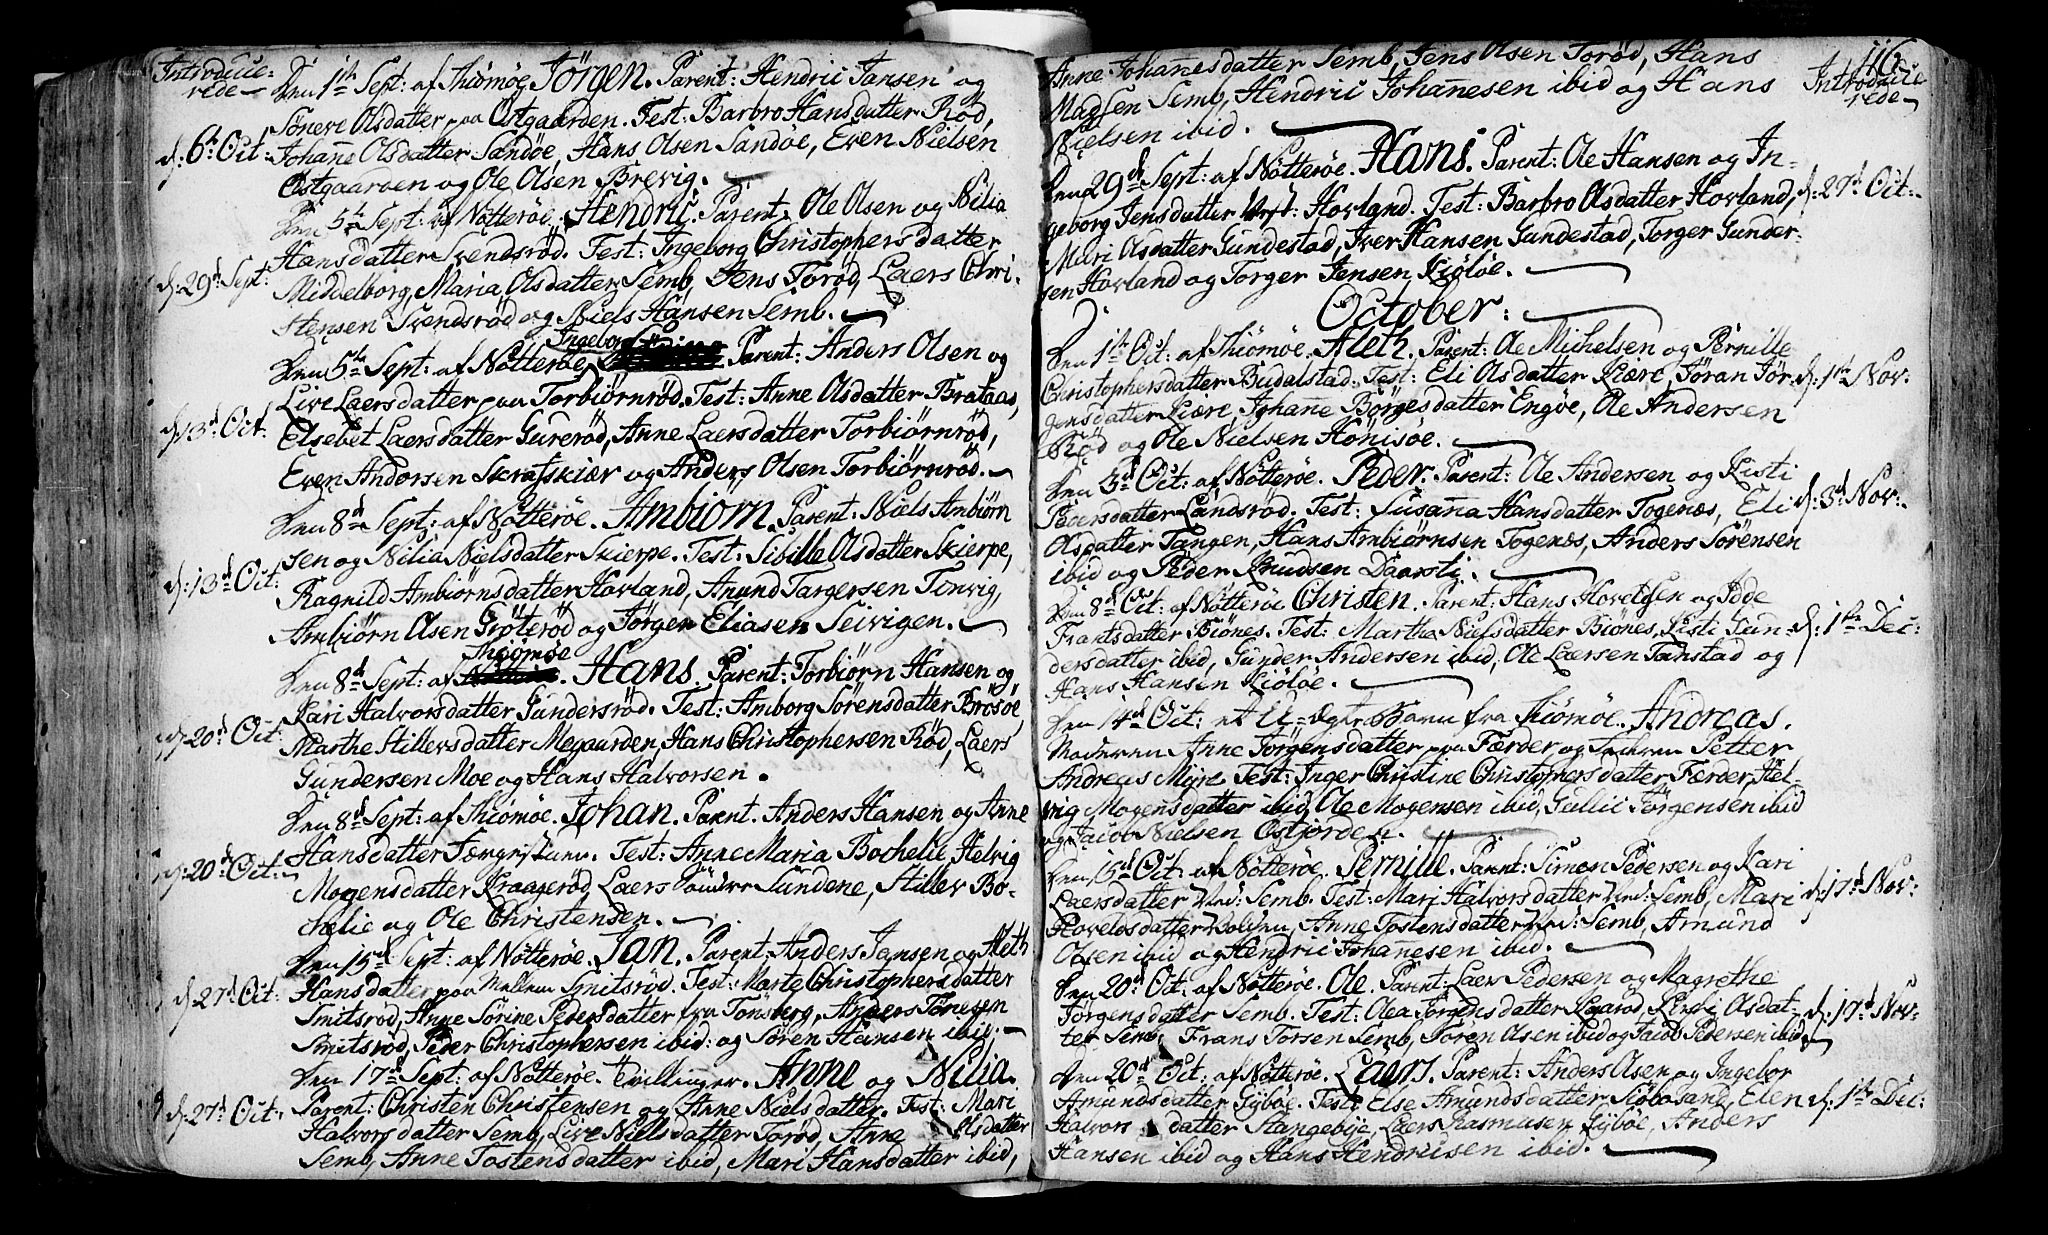 Introduce-
rede
Den 1te Sept: af Thiømøe Jörgen. Parent: Hendric Jansen og
Sönere Olsdatter paa Ostgaarden. Test: Barbro Hansdatter Röd,
d: 6te Oct: Johanne Olsdatter Sandöe, Hans Olsen Sandöe, Even Nielsen
Ostgaarden og Ole Olsen Brevig.
Den 5te Sept: af Nötteröe. Hendric. Parent: Ole Olsen og Nilia
Hansdatter Svendsröd. Test: Ingeborg Christophersdatter
d: 29d Sept: Middelborg, Maria Olsdatter Semb, Jens Toröd, Laers Chri-
stensen Svendsröd og Niels Hansen Semb.
Ingeborg
Den 5te Sept: af Nötteröe Parent: Anders Olsen og
Live Laersdatter paa Torbiörnröd. Test: Anne Olsdatter Brataas,
d: 13d Oct: Elsebet Laersdatter Gureröd, Anne Laersdatter Torbiörnröd,
Even Andersen Skrafskiær og Anders Olsen Torbiörnröd.
Den 8d Sept: af Nötteröe. Ambiörn. Parent: Niels Ambiörn
sen og Nilia Nielsdatter Skierpe. Test: Sibille Olsdatter Skierpe,
d: 13d Oct: Ragnild Ambiörnsdatter Hovland, Anund Targersen Tonvig,
Ambiörn Olsen Gröteröd og Jörgen Eliasen Seivigen.
Thiömöe
Den 8d Sept: af . Hans. Parent: Torbiörn Hansen og
Kari Halvorsdatter Gundersröd. Test: Amborg Sörensdatter Brösöe
d: 20d Oct: Marthe Stillersdatter Megaarden, Hans Christophersen Röd, Laers
Gundersen Moe og Hans Halvorsen.
Den 8d Sept: af Thiömöe. Johan. Parnt. Anders Hansen og Anne
Hansdatter . Test: Anne Maria Bochelie, Helvig
d: 20d Oct: Mogensdatter Kraageröd, Laers Sundene, Stiller Bo-
chelie og Ole Christensen.
Den 15d Sept: af Nötteröe. Jan. Parent: Anders Jansen og Aleth
d: 27d Oct: Hansdatter paa Mellem Smitsröd. Test: Marte Christophersdatter
Smitsröd, Anne Sörine Pedersdatter fra Tönsberg, Anders Jönesen
Smitsröd, Peder Christophersen ibid: og Sören Hansen ibid:
Den 17d Sept: af Nötteröe. Tvillinger. Anne og Nilia.
d: 27d Oct: Parent: Christen Christensen og Anne Nielsdatter. Test: Mari
Halvorsdatter Semb, Live Nielsdatter Toröd, Anne Olsdatter
Semb, Anne Tostensdatter ibid, Mari Hansdatter ibid,
116
Introduce
rede
Anne Johannesdatter Semb, Jens Olsen Toröd, Hans
Madsen Semb, Hendric Johannesen ibid og Hans
Nielsen ibid.
Den 29d Sept: af Nötteröe. Hans. Parent: Ole Hansen og In-
geborg Jensdatter : Hovland. Test: Barbro Olsdatter Hovland, d: 27d Oct:
Mari Olsdatter Gundestad, Iver Hansen Gundestad, Torger Gunder-
sen Hovland og Torger Jensen Kiölöe.
October:
Den 1te Oct: af Thiömöe. Aleth. Parent: Ole Michelsen og Pernille
Christophersdatter Budalstad. Test: Eli Olsdatter Kiære, Jöran Jör- d: 1te Nov:
gensdatter Kiære, Johanne Börgesdatter Engöe, Ole Andersen
Röd og Ole Nielsen Hönisöe.
Den 3d Oct: af Nötteröe. Peder. Parent: Ole Andersen og Kisti
Pedersdatter Landsröd. Test: Susanna Hansdatter Togenæs, Eli d: 3d Nov:
Olsdatter Tangen, Hans Ambiörnsen Togenæs, Anders Sörensen
ibid og Peder Knudsen Daarsti.
Den 8d Oct: af Nötteröe Christen. Parent: Hans Hovelsen og Ide
Frantsdatter Biönes. Test: Marthe Nielsdatter Biönes, Kisti Gun- d: 1te Dec:
dersdatter ibid, Gunder Andersen ibid, Ole Laersen Tanstad og
Hans Hansen Kiölöe.
Den 14d Oct: et U-ægte Barn fra Thiömöe. Andreas.
Moderen Anne Jörgensdatter paa Færder og Faderen Petter
Andreas Mijre. Test: Inger Christine Christophersdatter Færder, Hel-
vig Mogensdatter ibid, Ole Mogensen ibid, Gullic Jörgensen ibid
og Jacob Nielsen Ostjordet.
Den 15d Oct: af Nötteröe. Pernille. Parent: Simon Pedersen og Kari
Laersdatter : Semb. Test: Mari Halvorsdatter : Semb, Mari d: 17d Nov:
Hovelsdatter Bolijen, Anne Tostensdatter : Semb, Amund
Olsen ibid og Hendric Johannesen ibid.
Den 20d Oct: af Nötteröe. Ole. Parent: Laer Pedersen og Magrethe
Jörgensdatter Semb. Test: Olea Jörgensdatter , Olsdat- d: 17d Nov:
ter Semb, Frans Torsen Semb, Sören Olsen ibid og Jacob Pedersen ibid
Den 20d Oct: af Nötteröe. Laers. Parent: Anders Olsen og Ingebor
Amundsdatter Gijböe. Test: Else Amundsdatter Siöbosand, Elen d: 1te Dec:
Halvorsdatter Stangebije, Laers Rasmusen Gijböe, Anders
Hansen ibid og Hans Hendricsen ibid.